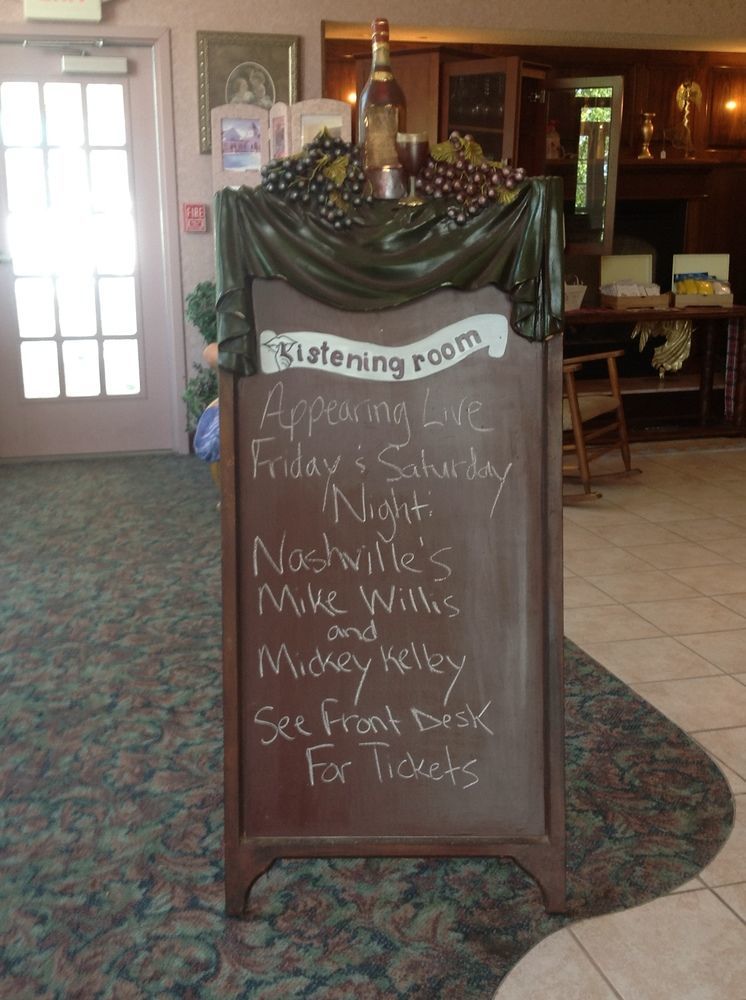 EXIT
FIRE
Listening room
Appearing Live
Friday & Saturday
Night:
Nashville's
Mike Willis
and
Mickey Kelley
See Front Desk
For Tickets